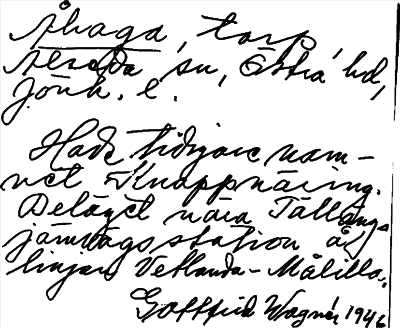 Åhaga, torp,
Alseda sn, Östra hd,
Jönk. l.
Hade tidigare nam-
net Knappnäring.
Beläget nära Tällängs
järnvägsstation å
linjen Vetlanda-Målilla.
Gottfrid Wagnér 1946